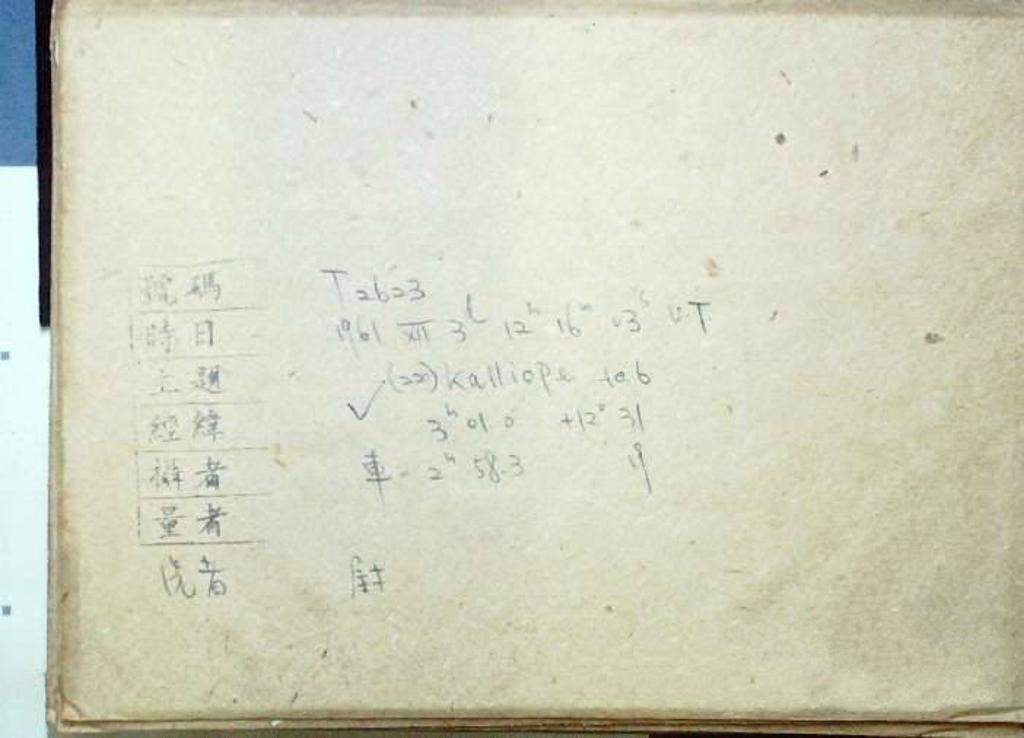 號碼 T2623
時日 1961 XII 3d 12h 16m 03s UT
主題 ✓(22) Kalliope 10.6
經緯 3h 01 0 +12° 31
攝者 車 - 2h 58.3 19
量者
洗者 尉